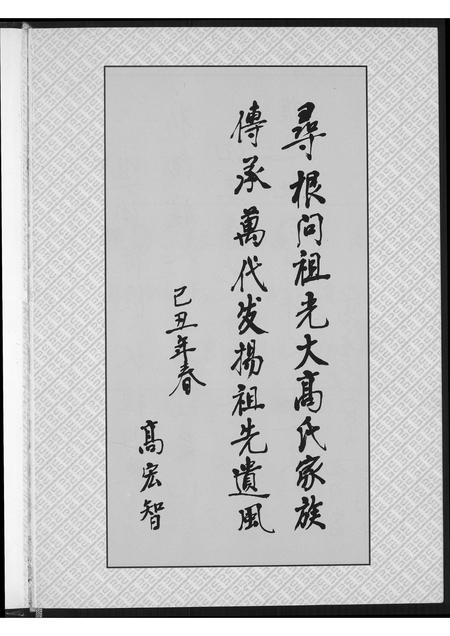 尋根问祖光大高氏家族
傳承萬代发揚祖先遺風
己丑年春
高宏智